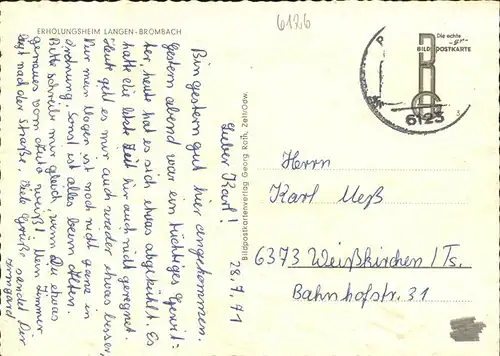 6126
ERHOLUNGSHEIM LANGEN-BROMBACH
Die echte
-gr-
BILDPOSTKARTE
6123
3
28.7.71
Lieber Karl!
Bin gestern gut hier angekommen.
Gestern abend war ein tüchtiges Gewit=
ter, heute hat es sich etwas abgekühlt. Es
hatte die letzte Zeit hier auch nicht geregnet.
Heute geht es mir auch wieder etwas besser,
Nur mein Magen ist noch nicht ganz in
Ordnung, sonst ist alles beim Alten.
Bitte schreibe mir gleich, wenn Du etwas
genaues vom weißt. Mein Zimmer
liegt nach der Straße. Viele Grüße sendet Dir
Irmgard
Bildpostkartenverlag Georg Roth, Zell/Odw.
Herrn
Karl Meß
6373 Weißkirchen/Ts.
Bahnhofstr. 31